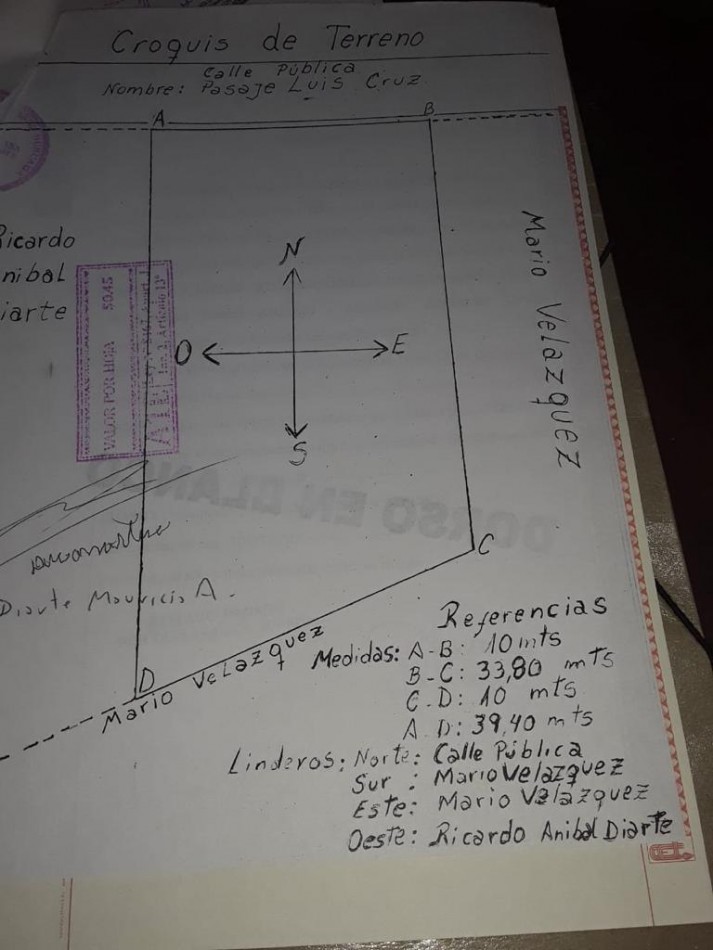 Croquis de Terreno
Calle Pública
Nombre: Pasaje Luis Cruz
A
B
Ricardo
Anibal
Diarte
Mario Velazquez
N
O
E
S
VALOR POR HOJA 5045
DORSO EN BLANCO
C
Diarte Mauricio A.
D
Mario Velazquez
Referencias
Medidas: A-B: 10 mts
B-C: 33,80 mts
C-D: 10 mts
A D: 39,40 mts
Linderos: Norte: Calle Pública
Sur : Mario Velazquez
Este: Mario Velazquez
Oeste: Ricardo Anibal Diarte